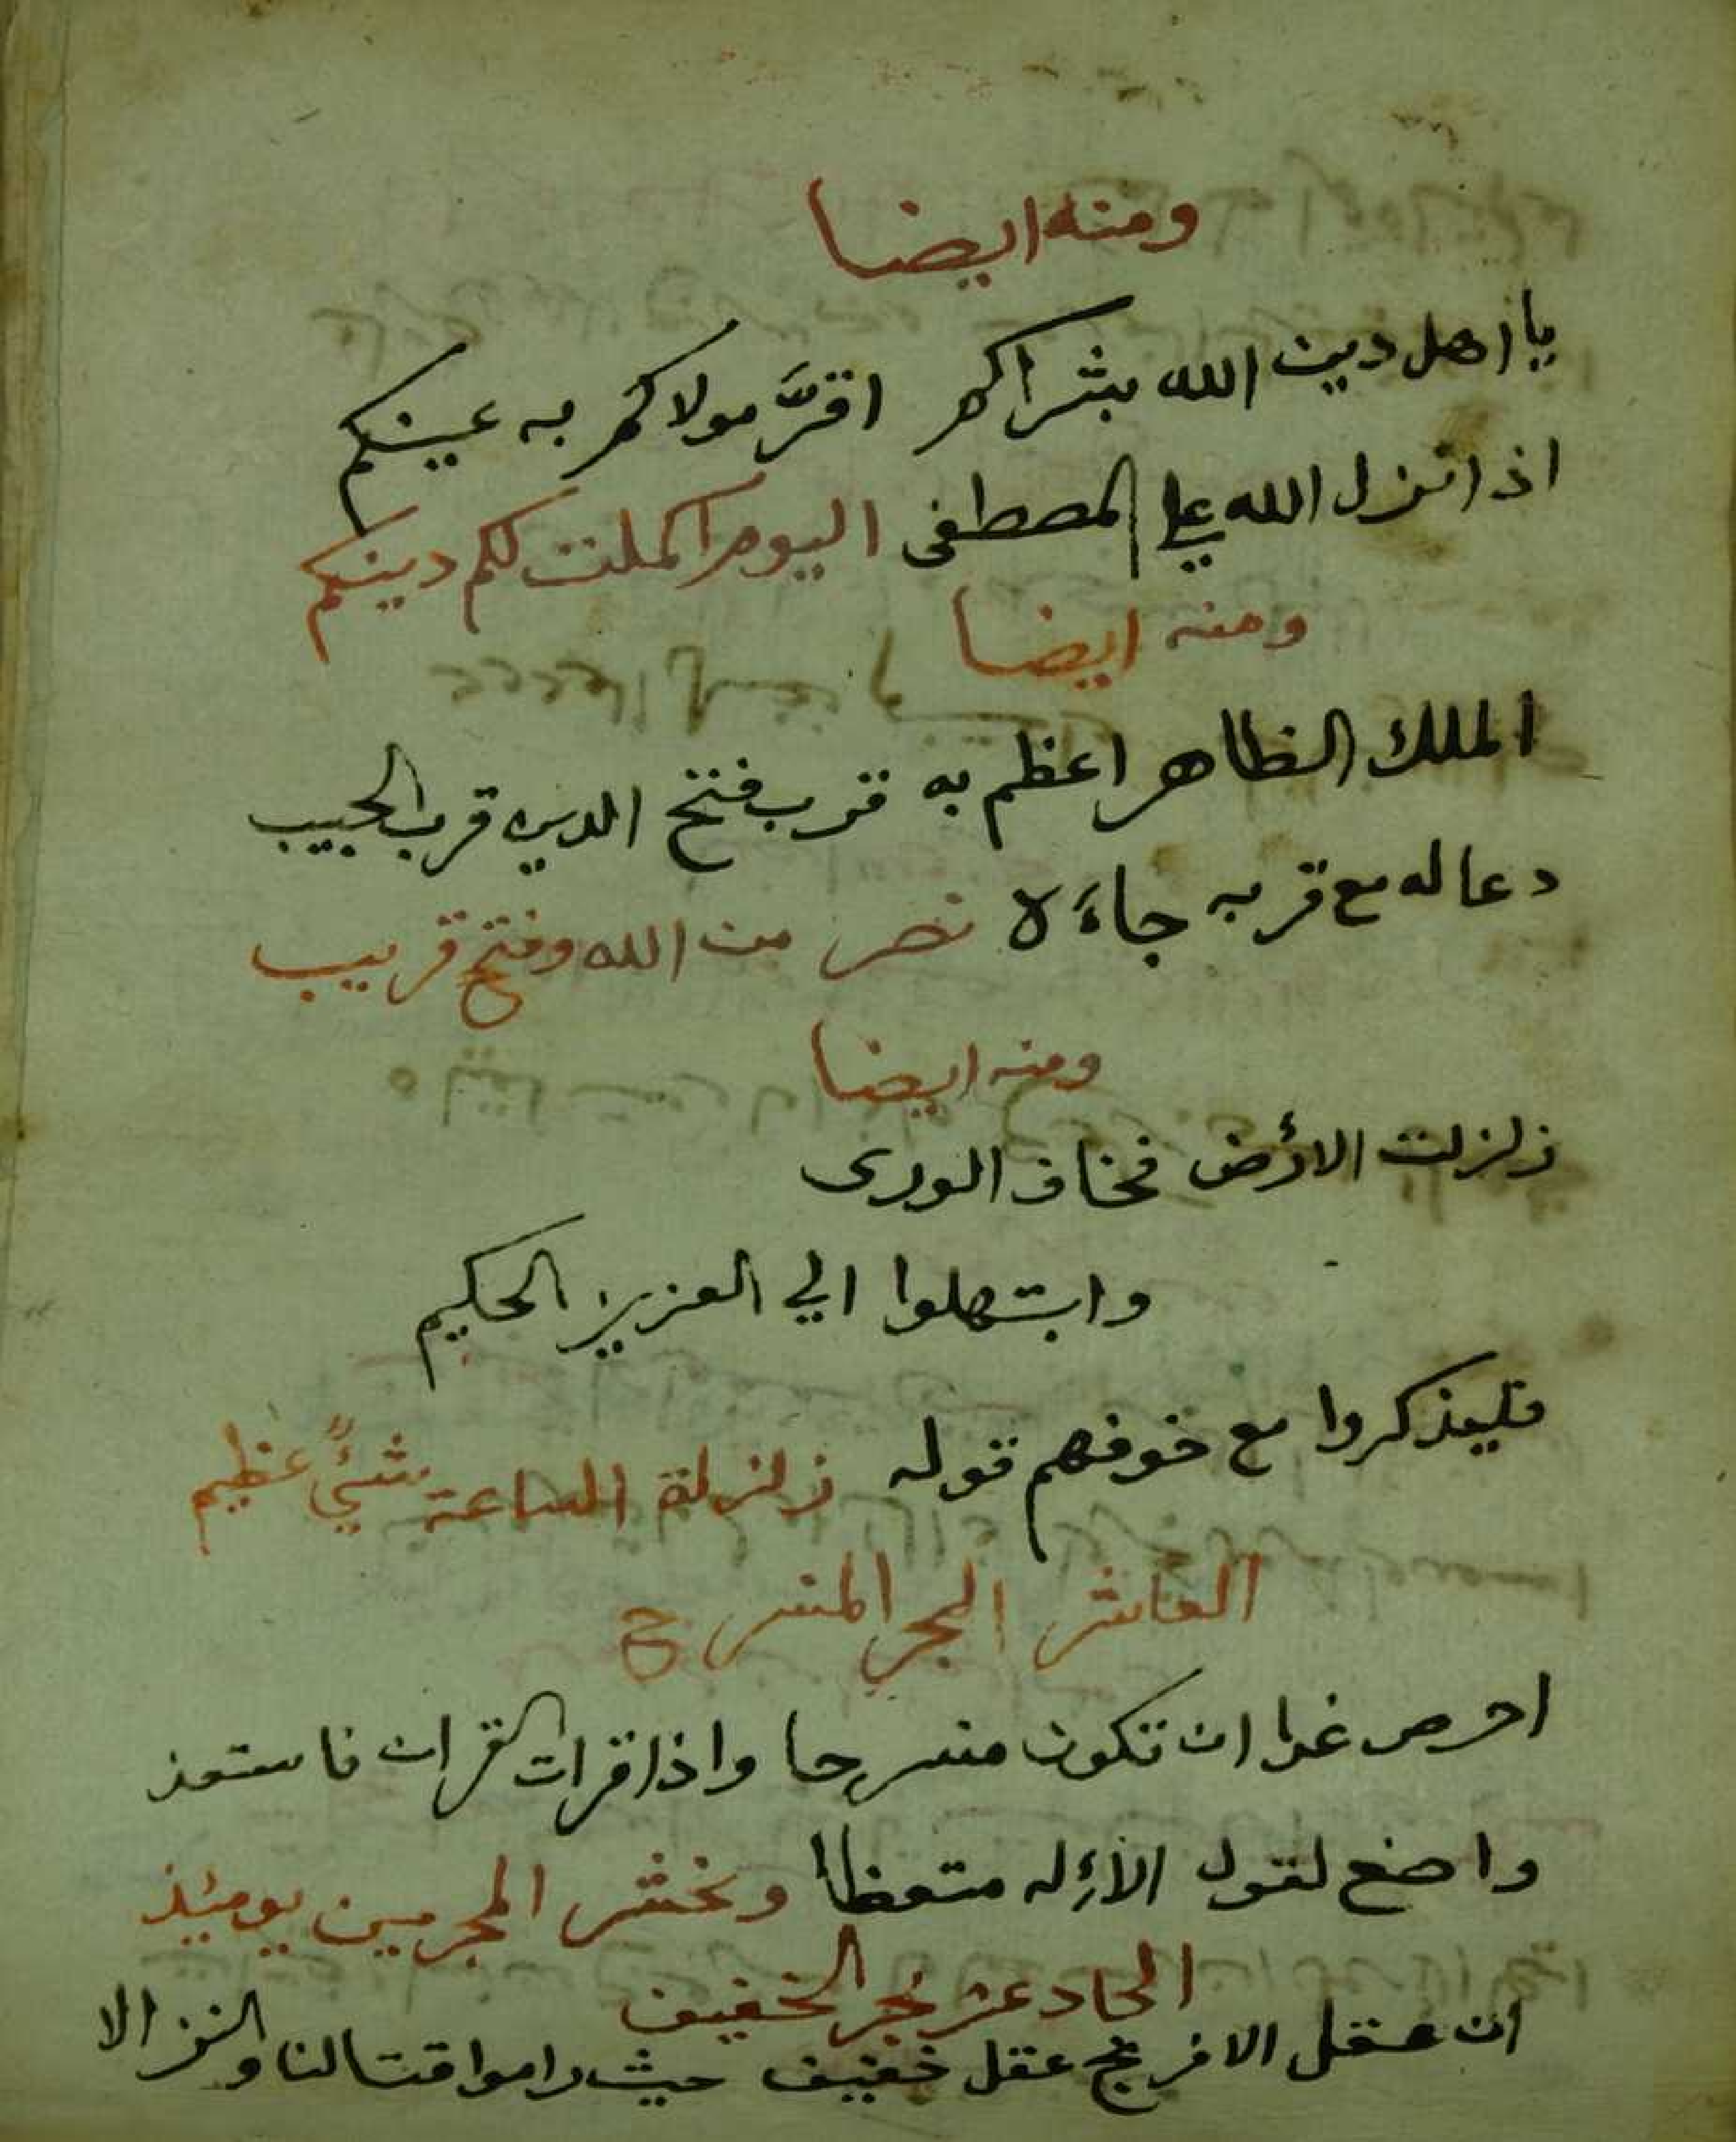 ومنه ايضا
يا اهل دين الله بشراكم اقرَّ مولاكم به عينكم
اذ انزل الله علي المصطفى اليوم اكملت لكم دينكم
ومنه ايضا
الملك الظاهر اعظم به قرب فتح الدين قرب الحبيب
دعا له مع قربه جاءَه نصر من الله وفتح قريب
ومنه ايضا
زلزلت الأرض فخاف الورى
وابتهلوا الي العزيز الحكيم
فليذكروا مع خوفهم قوله زلزلة الساعة شيءٌ عظيم
العاشر البحر المنسرح
احرص غدا ان تكون منسرحا واذا قرات القران فاستعذ
واصغ لقول الإله متعظا ونحشر المجرمين يومئذ
الحاد عشر بحر الخفيف
ان عقل الافرنج عقل خفيف حيث راموا قتالنا والنزالا